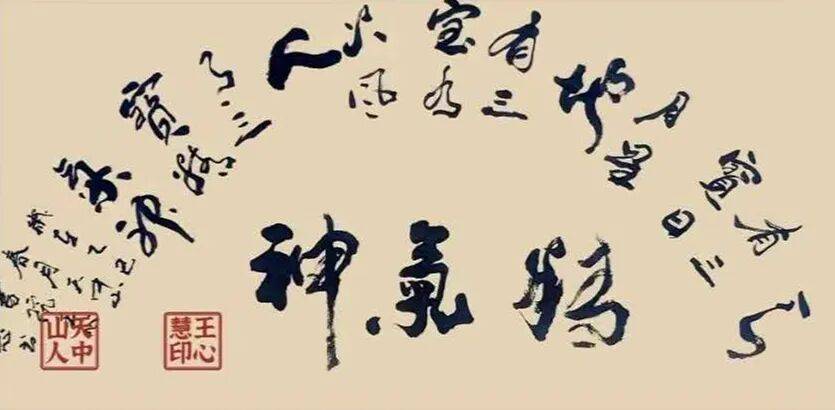 天
有三
寶日
月星
地
有三
寶水
火風
人
有三
寶精
氣神
精氣神
天中山人
王心慧印